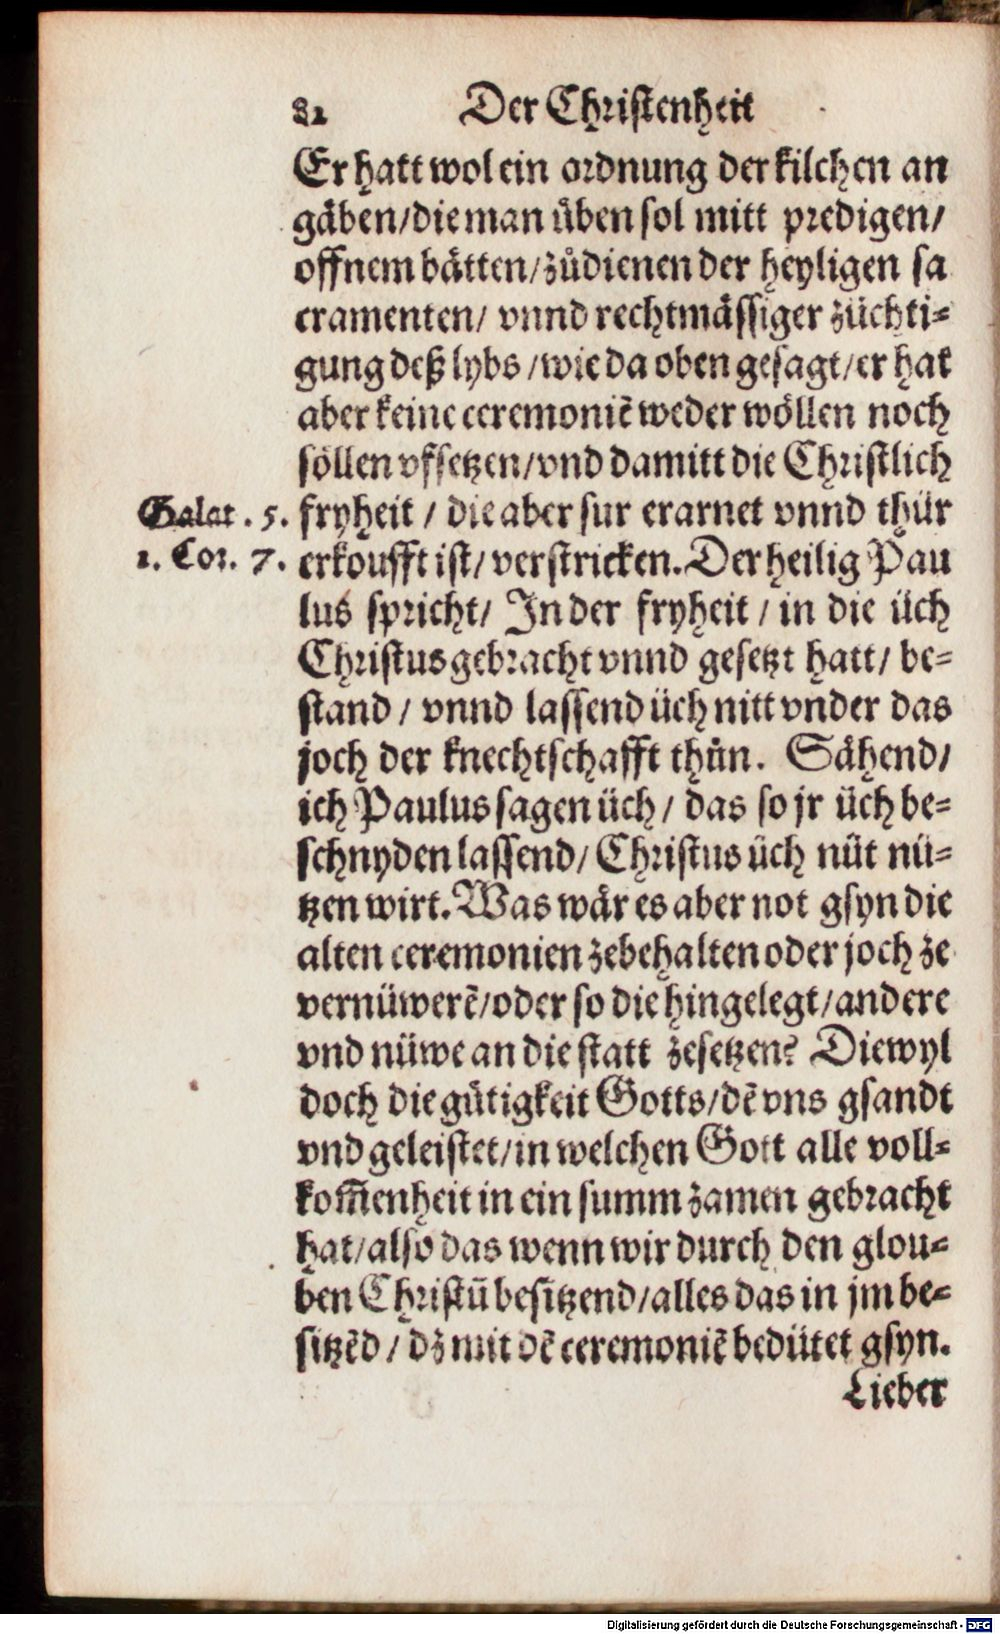 82 Der Christenheit
Er hatt wol ein ordnung der kilchen an
gäben/die man üben sol mitt predigen/
offnem bätten/zůdienen der heyligen sa
cramenten/ vnnd rechtmässiger züchti⸗
gung deß lybs /wie da oben gesagt/er hat
aber keine ceremoniẽ weder wöllen noch
söllen vfsetzen/vnd damitt die Christlich
Galat. 5. fryheit / die aber sur erarnet vnnd thür
1. Cor. 7. erkoufft ist/ verstricken. Der heilig Pau
lus spricht/ In der fryheit / in die üch
Christus gebracht vnnd gesetzt hatt/ be⸗
stand / vnnd lassend üch nitt vnder das
joch der knechtschafft thůn. Sähend/
ich Paulus sagen üch/ das so jr üch be⸗
schnyden lassend/ Christus üch nüt nü⸗
tzen wirt. Was wär es aber not gsyn die
alten ceremonien zebehalten oder joch ze
vernüwerẽ/oder so die hingelegt/andere
vnd nüwe an die statt zesetzen? Diewyl
doch die gütigkeit Gotts/dẽ vns gsandt
vnd geleistet/in welchen Gott alle voll⸗
kom̃enheit in ein summ zamen gebracht
hat/also das wenn wir durch den glou⸗
ben Christũ besitzend/alles das in jm be⸗
sitzẽd / dz mit dẽ ceremoniẽ bedütet gsyn.
Lieber
Digitalisierung gefördert durch die Deutsche Forschungsgemeinschaft - DFG